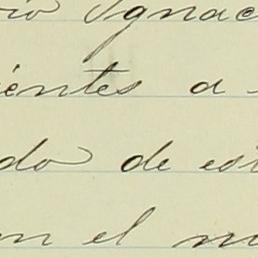 rio Ignac
ientes a
do de est
en el m